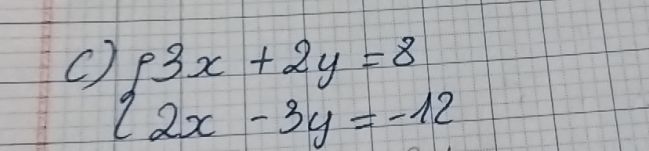 c) { 3x + 2y = 8
2x - 3y = -12